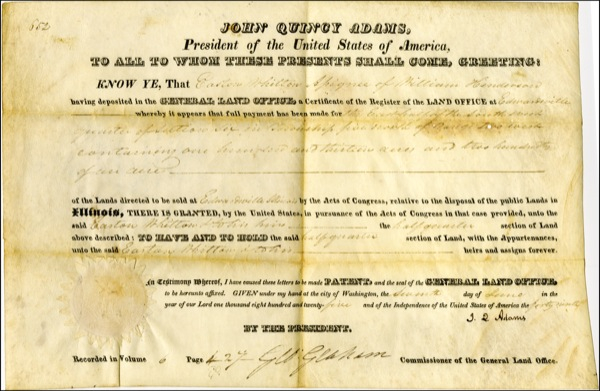 862
JOHN QUINCY ADAMS,
President of the United States of America,
TO ALL TO WHOM THESE PRESENTS SHALL COME, GREETING:
KNOW YE, That Easton Whitton Assignee of William Henderson
having deposited in the GENERAL LAND OFFICE, a Certificate of the Register of the LAND OFFICE at Edwardsville
whereby it appears that full payment has been made for the half of the South
quarter of section six in Township five north of Range
containing one hundred and thirteen acres and two hundredths
of an acre
of the Lands directed to be sold at Edwardsville Illinois by the Acts of Congress, relative to the disposal of the public Lands in
Illinois, THERE IS GRANTED, by the United States, in pursuance of the Acts of Congress in that case provided, unto the
said Easton Whitton & his heirs the half quarter section of Land
above described: TO HAVE AND TO HOLD the said half quarter section of Land, with the appurtenances,
unto the said Easton Whitton & his heirs and assigns forever.
In Testimony Whereof, I have caused these letters to be made PATENT, and the seal of the GENERAL LAND OFFICE,
to be hereunto affixed. GIVEN under my hand at the city of Washington, the day of June in the
year of our Lord one thousand eight hundred and twenty-five and of the Independence of the United States of America the forty ninth
J. Q. Adams
BY THE PRESIDENT.
Recorded in Volume 6 Page 427 Geo Graham Commissioner of the General Land Office.